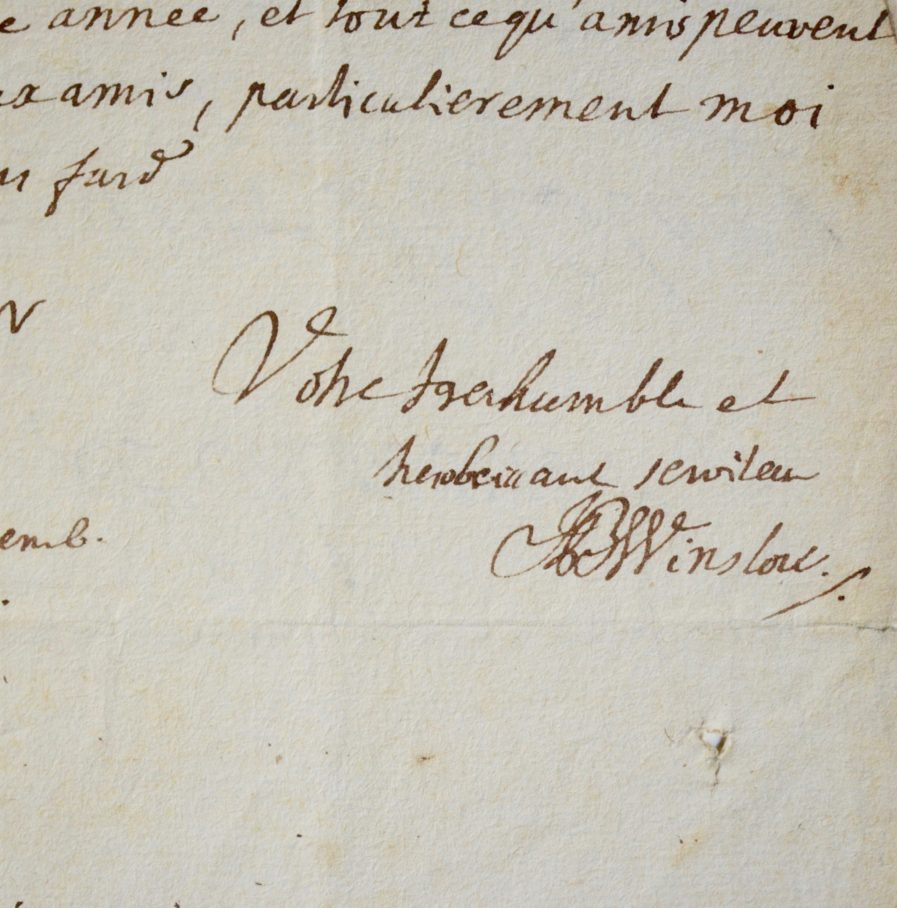 e année, et tout ce qu'amis peuvent
ux amis, particulierement moi
ns fard
Votre treshumble et
tresobeissant serviteur
Winslow.
emb.